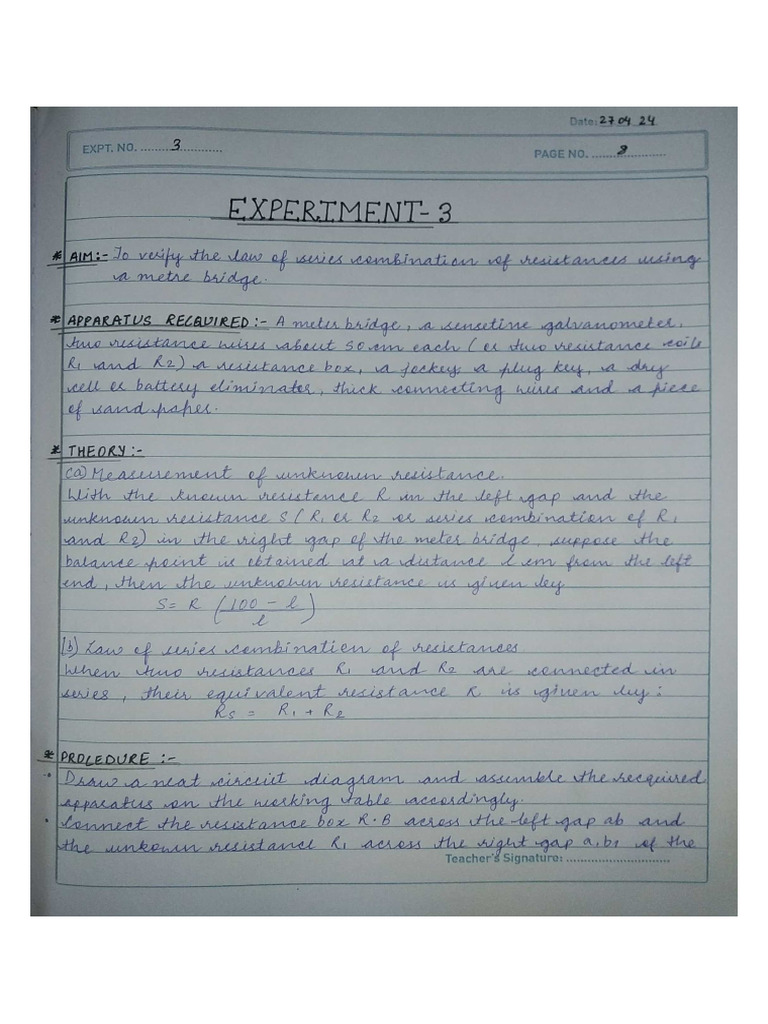 Date: 27 04 24
EXPT. NO. 3
PAGE NO. 8
EXPERIMENT-3
* AIM:- To verify the law of series combination of resistances using
a metre bridge.
* APPARATUS RECQUIRED:- A meter bridge, a sensetine galvanometer,
two resistance wires about 50 cm each (or two resistance coils
R1 and R2) a resistance box, a jockey a plug key, a dry
cell or battery eliminator, thick connecting wires and a piece
of sand paper.
* THEORY:-
(a) Measurement of unknown resistance.
With the known resistance R in the left gap and the
unknown resistance S (R1 or R2 or series combination of R1
and R2) in the right gap of the meter bridge, suppose the
balance point is obtained at a distance l cm from the left
end, then the unknown resistance is given by
S = R (100 - l / l)
(b) Law of series combination of resistances
When two resistances R1 and R2 are connected in
series, their equivalent resistance R is given by:
Rs = R1 + R2
* PROCEDURE :-
• Draw a neat circuit diagram and assemble the recquired
apparatus on the working table accordingly.
• Connect the resistance box R.B across the left gap ab and
the unkown resistance R1 across the right gap a1b1 of the
Teacher's Signature: